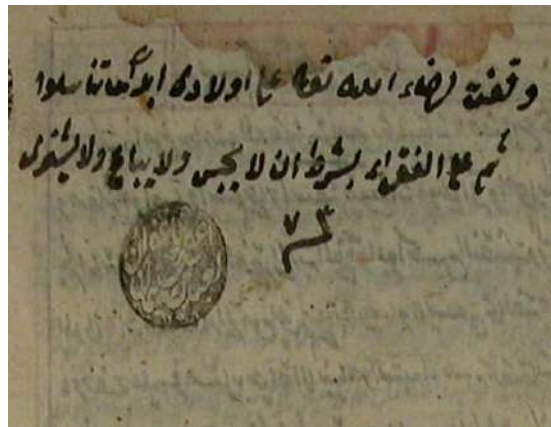 وقفت لرضاء الله تعه على اولاده ابدا ما تناسلوا
ثم على الفقراء بشرط ان لا يحبس ولا يباع ولا يشترى
٧٣